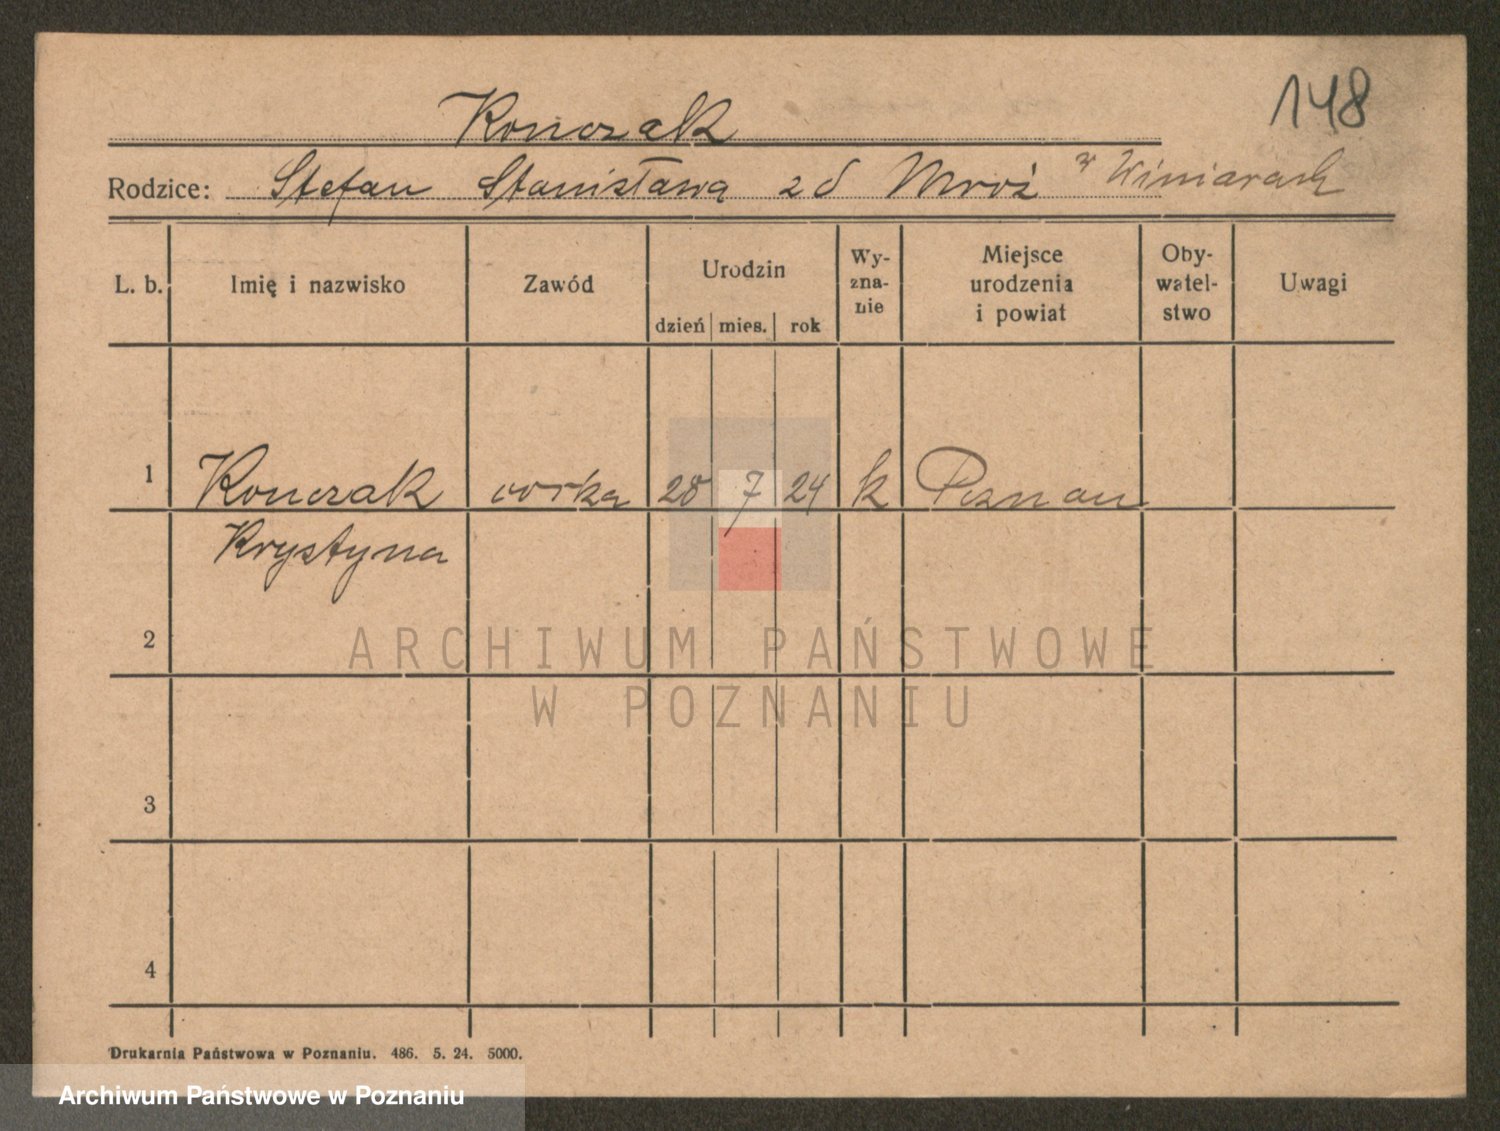 148
Konczak
Rodzice: Stefan Stanisława zd Mroż w Winiarach
L. b. Imię i nazwisko Zawód Urodzin Wyznanie Miejsce urodzenia i powiat Obywatelstwo Uwagi
dzień mies. rok
1 Konczak corka 28 7 24 k Poznan
Krystyna
2
ARCHIWUM PAŃSTWOWE
W POZNANIU
3
4
Drukarnia Państwowa w Poznaniu. 486. 5. 24. 5000.
Archiwum Państwowe w Poznaniu